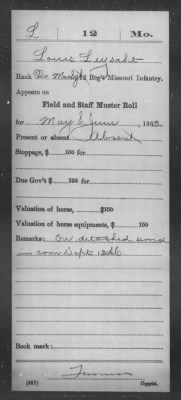 L | 12 | Mo.
Louis Lysaht
Rank 12 Reg't Missouri Infantry.
Appears on
Field and Staff Muster Roll
for May & June, 1863.
Present or absent Absent
Stoppage, $ 100 for
Due Gov't $ 100 for
Valuation of horse, $ 100
Valuation of horse equipments, $ 100
Remarks: On detached service
Dept
Book mark:
(557) Copyist.